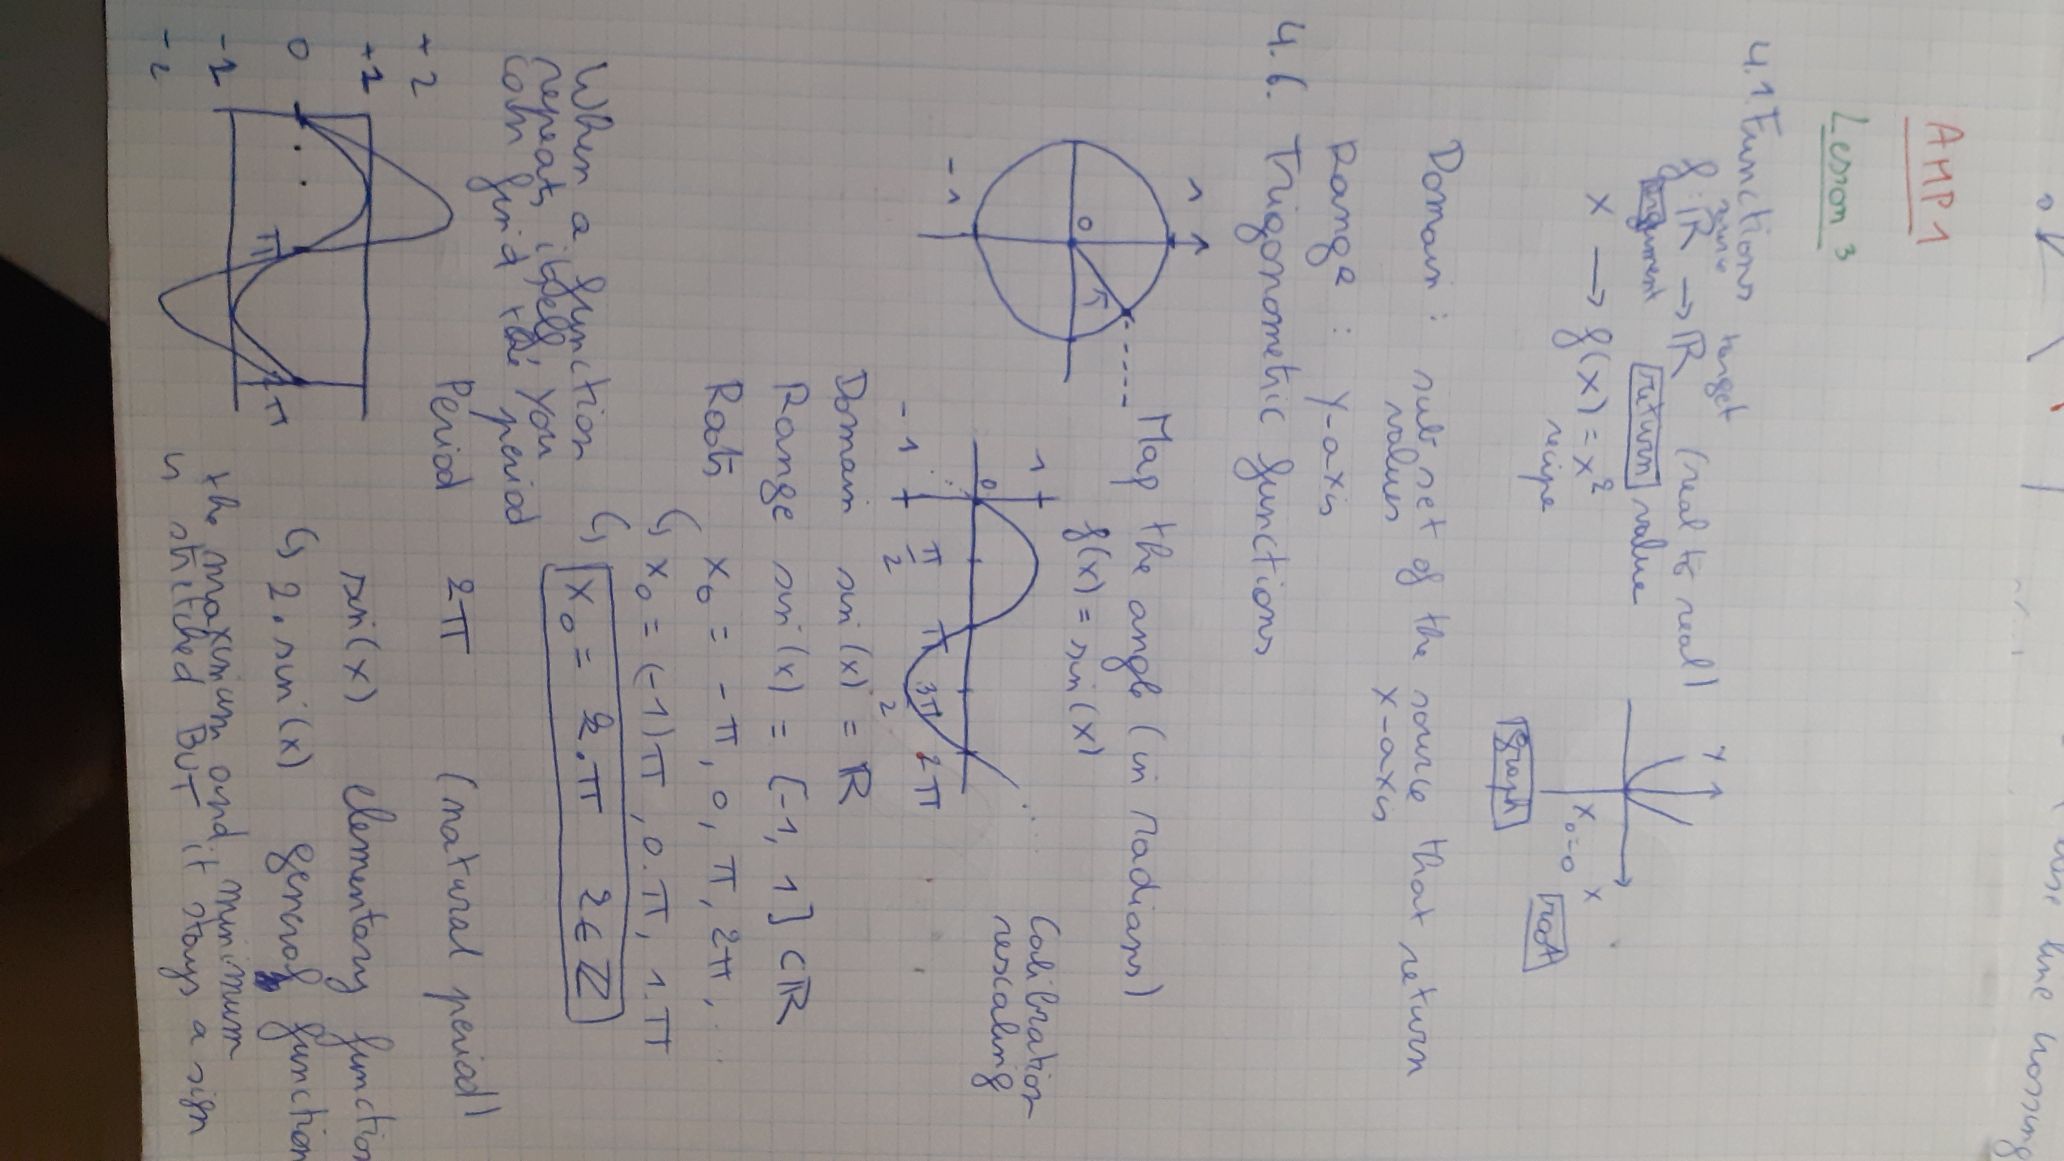 base line crossing
0
AMP1
Lesson 3
4.1. Functions
source target
f: ℝ → ℝ (real to real)
argument return value
x → f(x) = x²
recipe
y
x
x₀=0
root
graph
Domain: sub set of the source that return
values x-axis
Range: y-axis
4.6. Trigonometric functions
1
0
-1
Map the angle (in radians)
f(x) = sin(x)
1
0
-1
π/2 π 3π/2 2π
Calibration
rescaling
Domain sin(x) = ℝ
Range sin(x) = [-1, 1] ⊂ ℝ
Roots x₀ = -π, 0, π, 2π, ...
↳ x₀ = (-1)π, 0.π, 1.π
↳ x₀ = z.π z ∈ ℤ
When a function
repeats itself, you
can find the period
Period 2π (natural period)
+2
+1
0
-1
-2
π 2π
sin(x) elementary function
↳ 2.sin(x) general function
the maximum and minimum
is stretched BUT it stays a sign